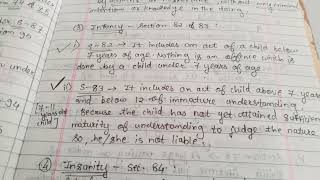 intention or knowledge in the doing.
(3) Infancy - Section 82 of 83 :
i) S-82 → It includes an act of a child below
7 years of age. Nothing is an offence which is
done by a child under 7 years of age
ii) S-83 → It includes an act of child above 7 years
and below 12 of immature understanding
7-11 years old child
Because the child has not yet attained sufficient
maturity of understanding to judge the nature
so, he/she is not liable.
(4) Insanity - Sec. 84 :